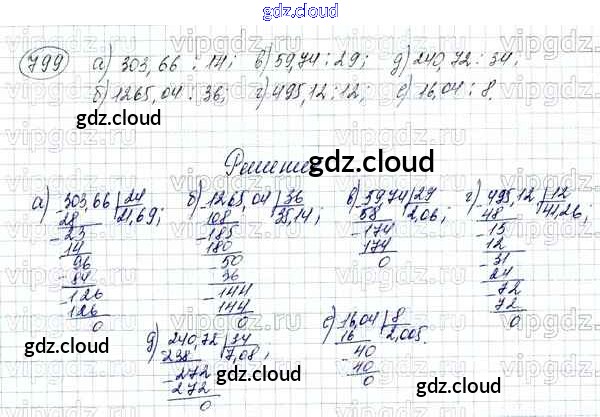 gdz.cloud
799 а) 303,66 : 14; в) 59,74 : 29; д) 240,72 : 34;
б) 1265,04 : 36; г) 495,12 : 12; е) 16,04 : 8.
gdz.cloud
Решение
gdz.cloud
а) 303,66 | 24
28 | 21,69;
- 23
14
- 96
- 84
- 126
126
0
б) 1265,04 | 36
108 | 35,14;
- 185
180
- 50
36
- 144
144
0
в) 59,74 | 29
58 | 2,06;
- 174
174
0
г) 495,12 | 12
48 | 41,26;
- 15
12
- 31
24
- 72
72
0
д) 240,72 | 34
238 | 7,08;
- 272
272
0
е) 16,04 | 8
16 | 2,005.
- 40
40
0
gdz.cloud
gdz.cloud
gdz.cloud
gdz.cloud